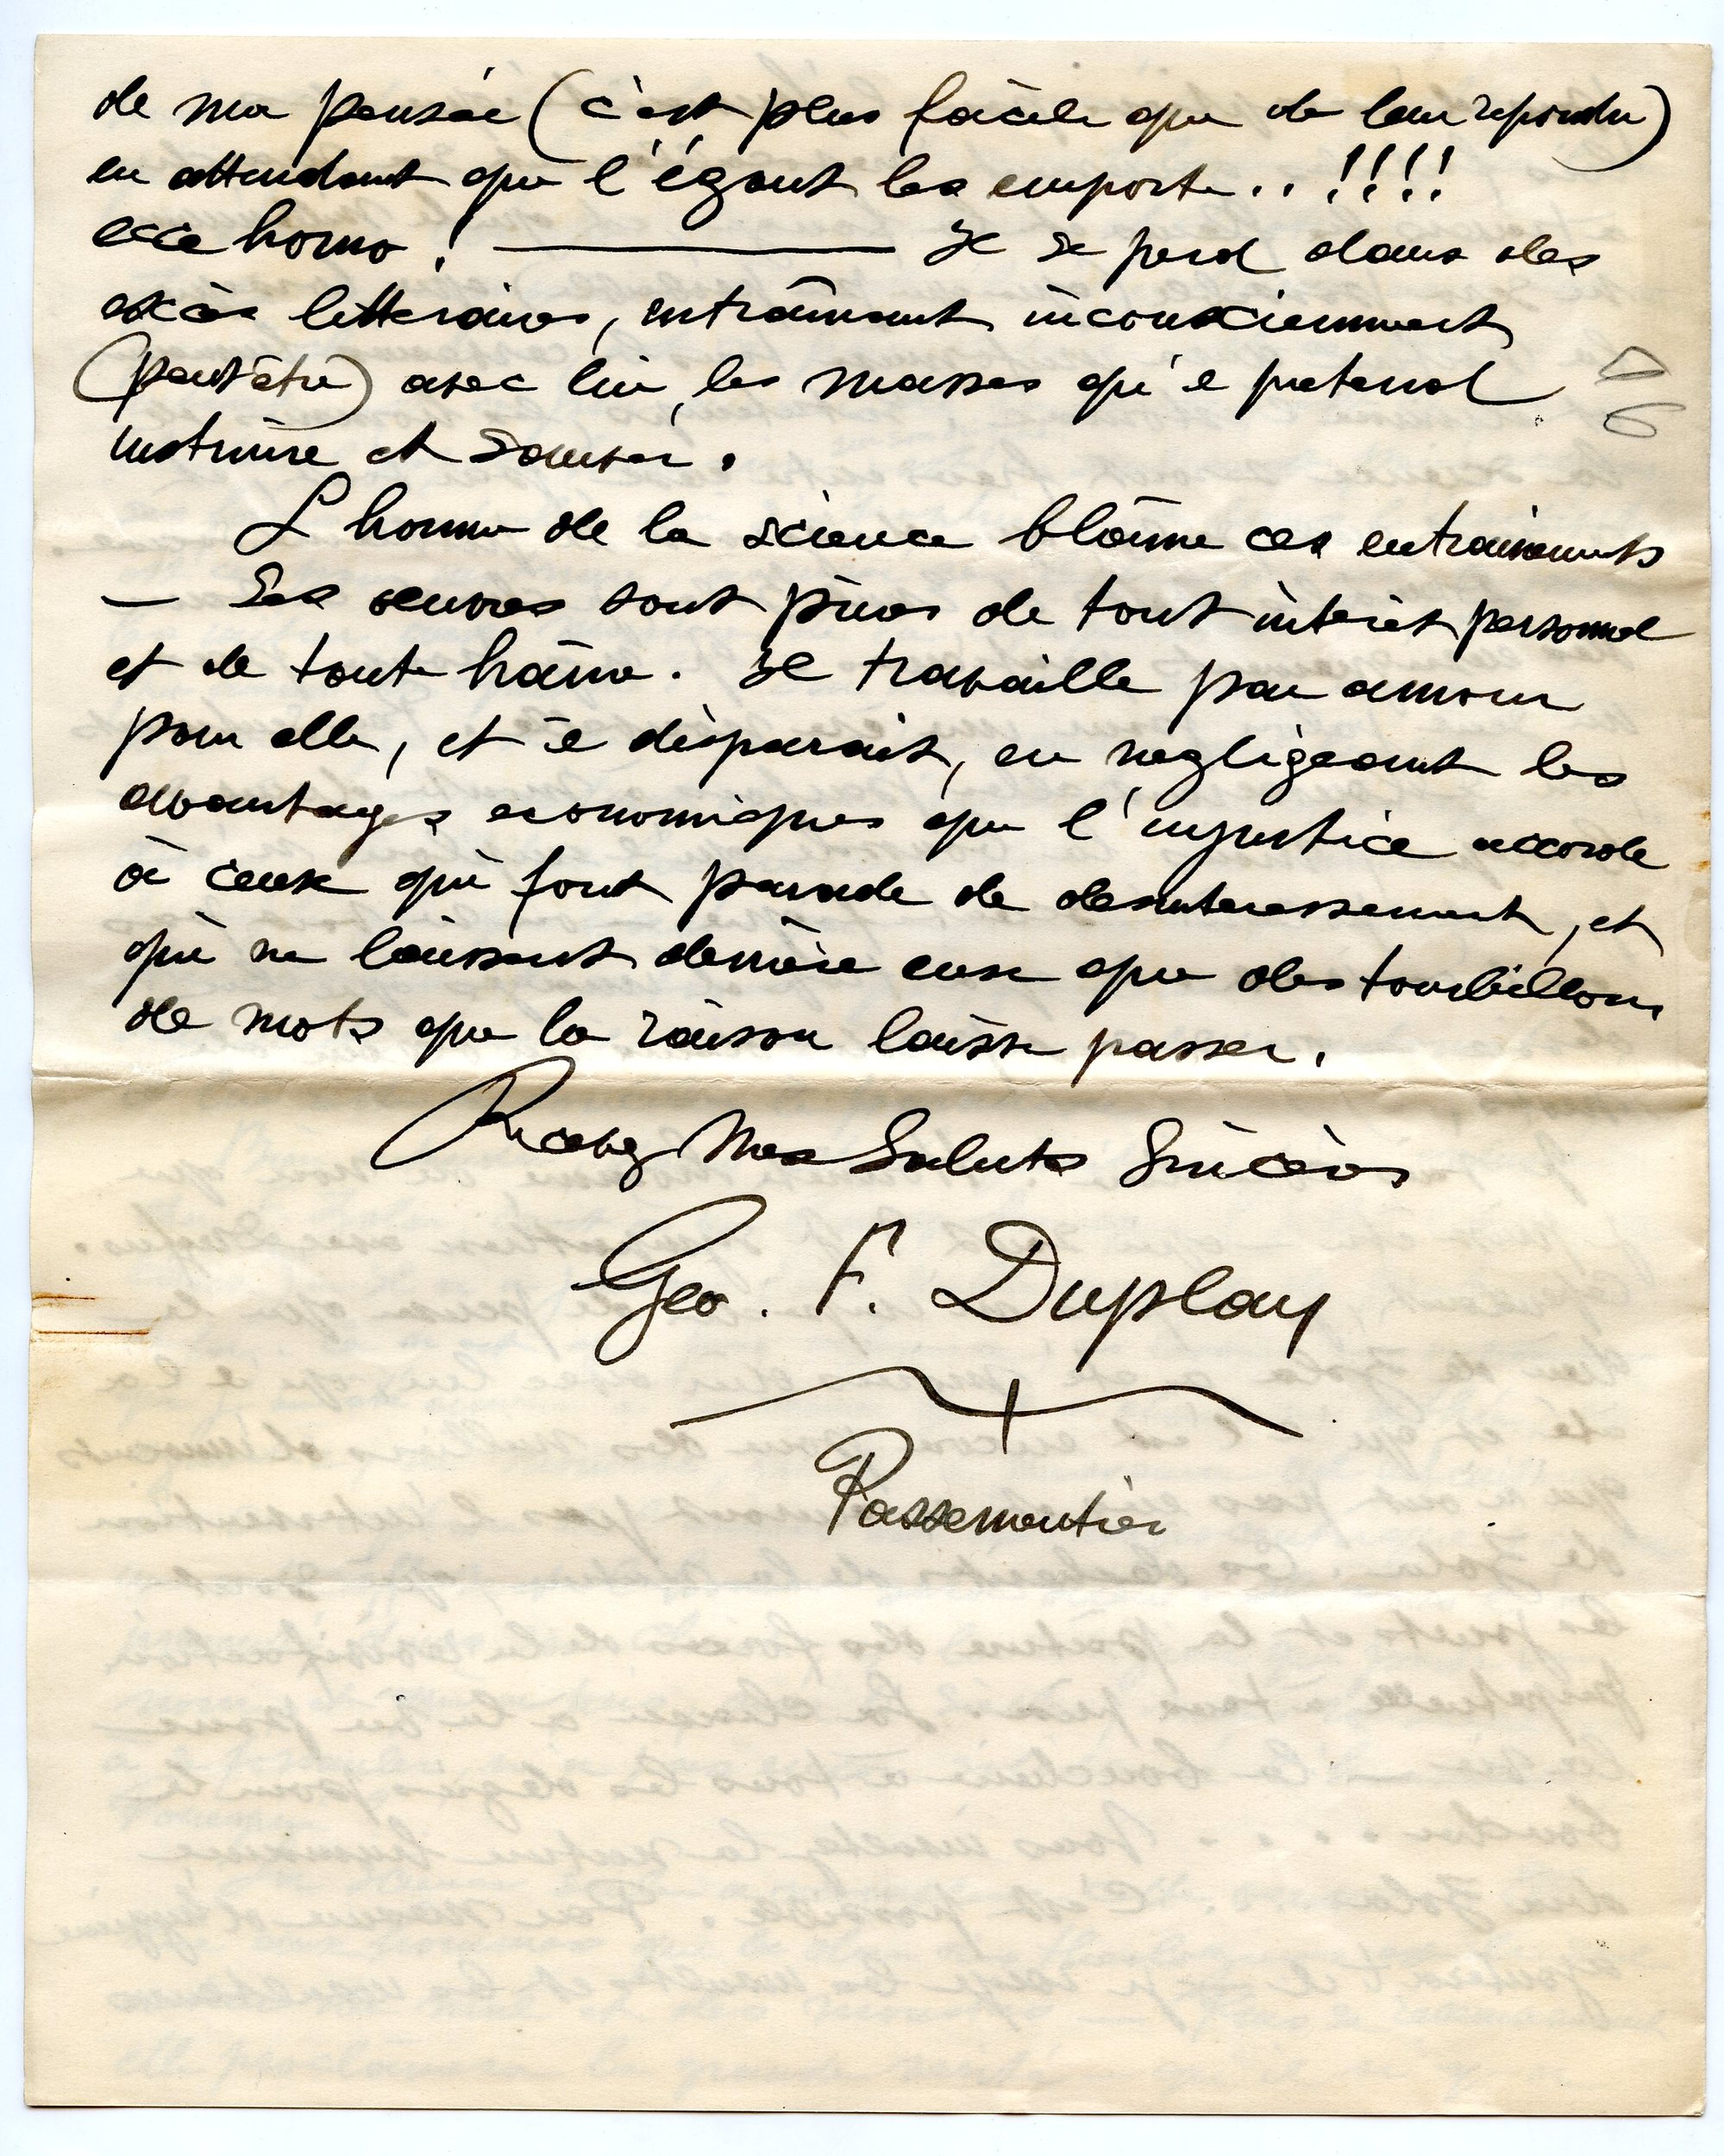 de ma pensée (c'est plus facile que de leur repondre)
en attendant que l'égout les emporte.. !!!!
ecce homo ! ——— Il se perd dans des
excès litteraires, entraînant inconsciemment
(peut être) avec lui, les masses qu'il pretend
instruire et sauver.
L homme de la science blâme ces entrainements
— Ses œuvres sont pures de tout intérêt personnel
et de toute haine. Il travaille par amour
pour elle, et il disparait, en negligeant les
avantages economiques que l'injustice accorde
à ceux qui font parade de desinteressement, et
qui ne laissent derrière eux que des tourbillons
de mots que la raison laisse passer.
Recevez Mes Saluts Sincères
Geo. F. Duplay
Passementier